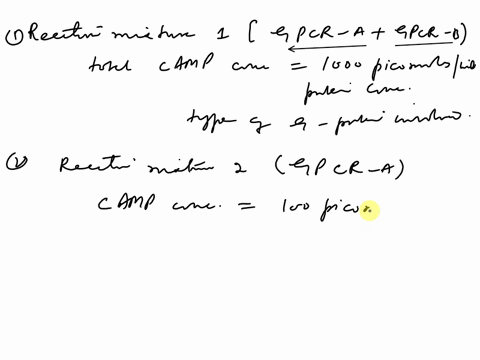 (1) Reaction mixture 1 [ GPCR-A + GPCR-B)
total cAMP conc = 1000 picomols/
protein conc.
type of G-protein involve.
(2) Reaction mixture 2 (GPCR-A)
cAMP conc. = 100 picom